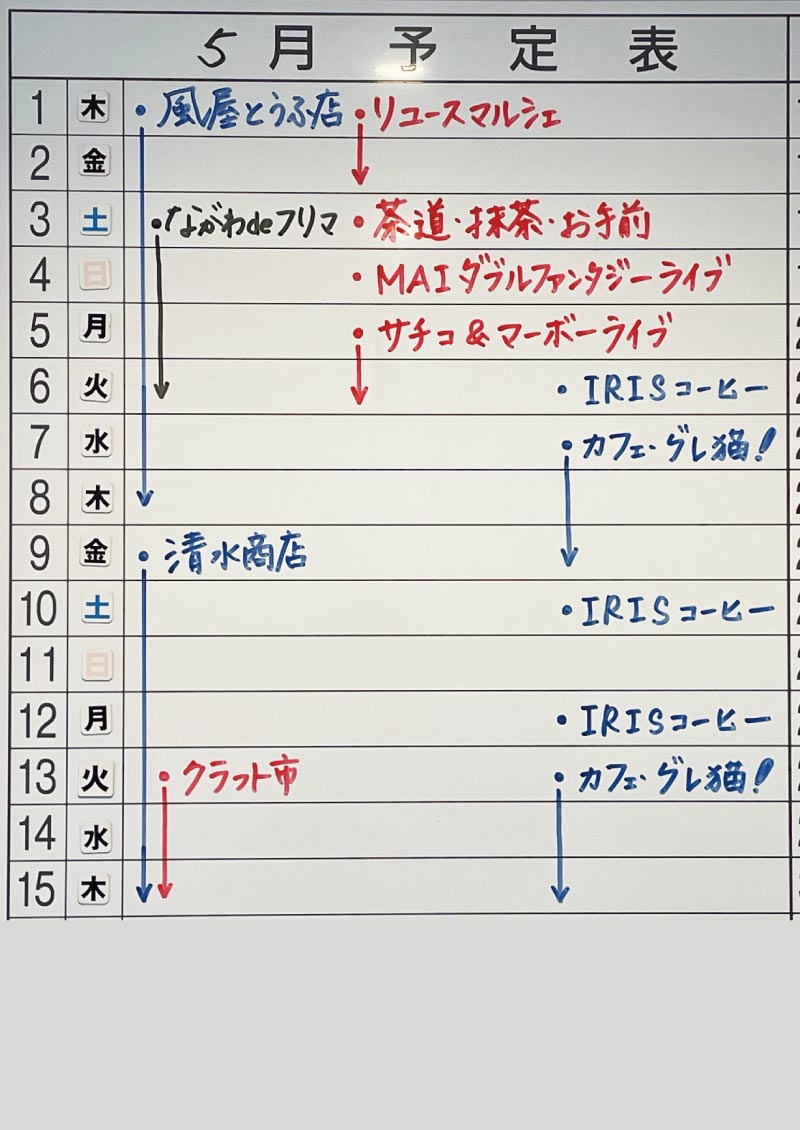 5月予定表
1 木 ・風屋とうふ店 ・リユースマルシェ
2 金
3 土 ・ながわdeフリマ ・茶道・抹茶・お手前
4 日 ・MAIダブルファンタジーライブ
5 月 ・サチコ&マーボーライブ
6 火 ・IRISコーヒー
7 水 ・カフェ・グレ猫!
8 木
9 金 ・清水商店
10 土 ・IRISコーヒー
11 日
12 月 ・IRISコーヒー
13 火 ・クラット市 ・カフェ・グレ猫!
14 水
15 木